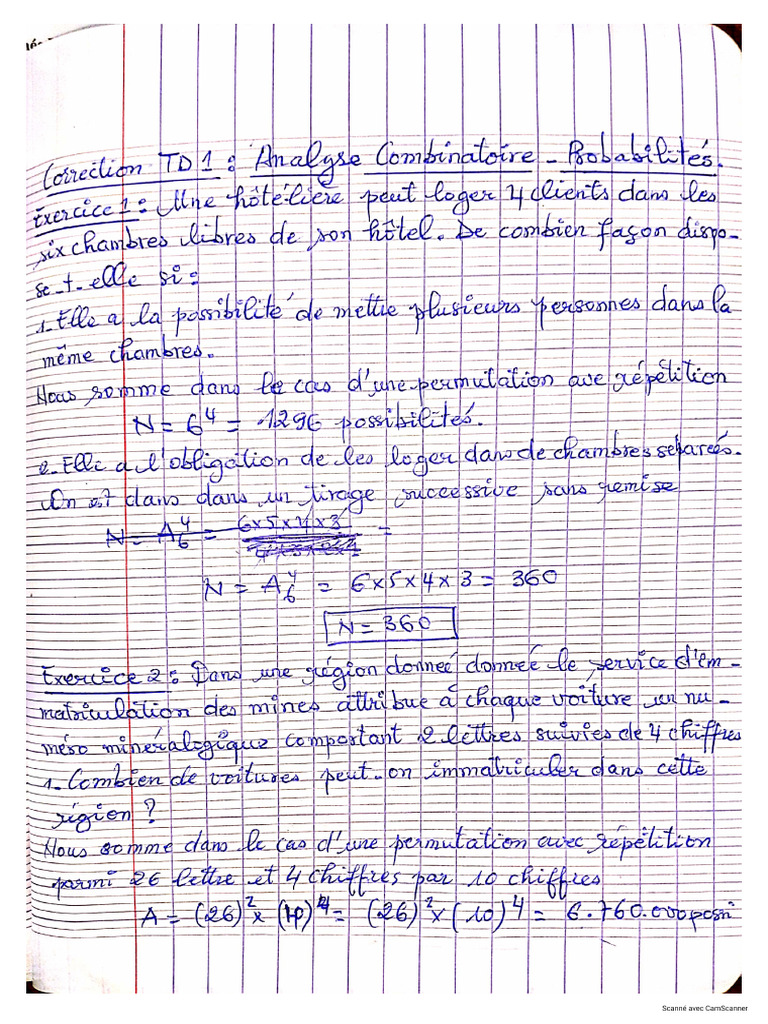 Correction TD1 : Analyse Combinatoire - Probabilités.
Exercice 1 : Une hôtélière peut loger 4 clients dans les
six chambres libres de son hôtel. De combien façon dispo-
se-t-elle si :
1- Elle a la possibilité de mettre plusieurs personnes dans la
même chambres.
Nous somme dans le cas d'une permutation ave répétition
N = 6^4 = 1296 possibilités.
2- Elle a l'obligation de les loger dans de chambres separeés.
On est dans dans un tirage successive sans remise
N = A_6^4 = 6x5x4x3 =
N = A_6^4 = 6x5x4x3 = 360
N = 360
Exercice 2 : Dans une région donneé donneé le service d'em-
matriculation des mines attribue à chaque voiture un nu-
méro minéralogique comportant 2 lettres suivies de 4 chiffres
1- Combien de voitures peut-on immatriculer dans cette
région ?
Nous somme dans le cas d'une permutation avec répétition
parmi 26 lettre et 4 chiffres par 10 chiffres
A = (26)^2 x (10)^4 = (26)^2 x (10)^4 = 6.760.000 possi
Scanné avec CamScanner